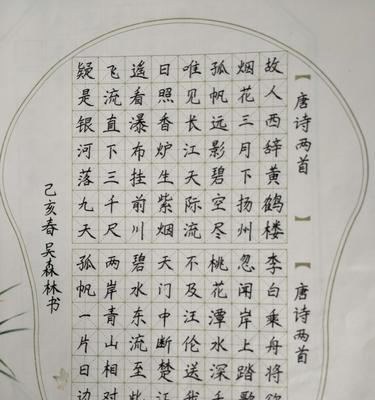 【唐诗两首】
故人西辞黄鹤楼
烟花三月下扬州
孤帆远影碧空尽
唯见长江天际流
日照香炉生紫烟
遥看瀑布挂前川
飞流直下三千尺
疑是银河落九天
【唐诗两首
李白乘舟将欲
忽闻岸上踏歌
桃花潭水深千
不及汪伦送我
天门中断楚江
碧水东流至此
两岸青山相对
孤帆一片日边
己亥春 吴森林书